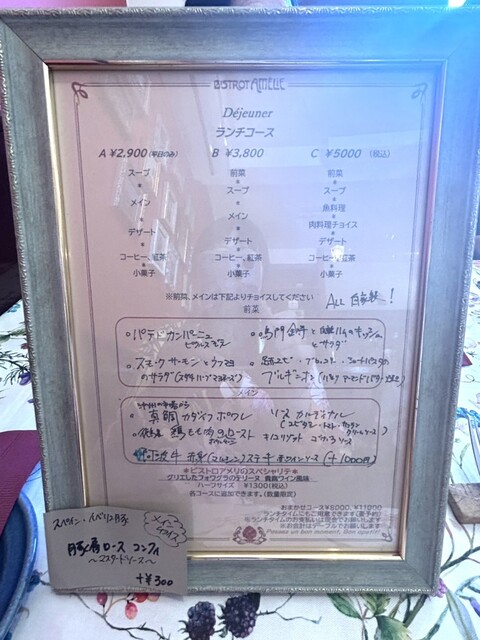 BISTROT AMÉLIE
Déjeuner
ランチコース
A ¥2,900 (平日のみ) B ¥3,800 C ¥5000 (税込)
スープ 前菜 前菜
メイン スープ スープ
デザート メイン 魚料理
コーヒー、紅茶 デザート 肉料理チョイス
小菓子 コーヒー、紅茶 デザート
小菓子 コーヒー、紅茶
小菓子
※前菜、メインは下記よりチョイスしてください
ALL 自家製!
前菜
パテドカンパーニュ
ピクルス
鳴門金時と自家製ハムのキッシュ
とサラダ
スモークサーモンと
のサラダ
ブルギニオン
メイン
真鯛 カダイフ ポワレ ソース カルディナル
鶏もも肉のロースト
キノコリゾット
ステーキ 赤ワインソース (+1000円)
※ビストロアメリのスペシャリテ※
グリエしたフォワグラのテリーヌ 貴腐ワイン風味
ハーフサイズ ¥1300(税込)
各コースに追加できます。(数量限定)
おまかせコース¥8000、¥11000
ランチタイムにもご用意できます(要予約)
※ランチタイムのお支払いは現金でお願いします
※お会計はテーブルでお願いします
Passez un bon moment, Bon appétit!
スペイン・イベリコ豚
メイン
チョイス
豚肩ロース コンフィ
~マスタードソース~
+¥300